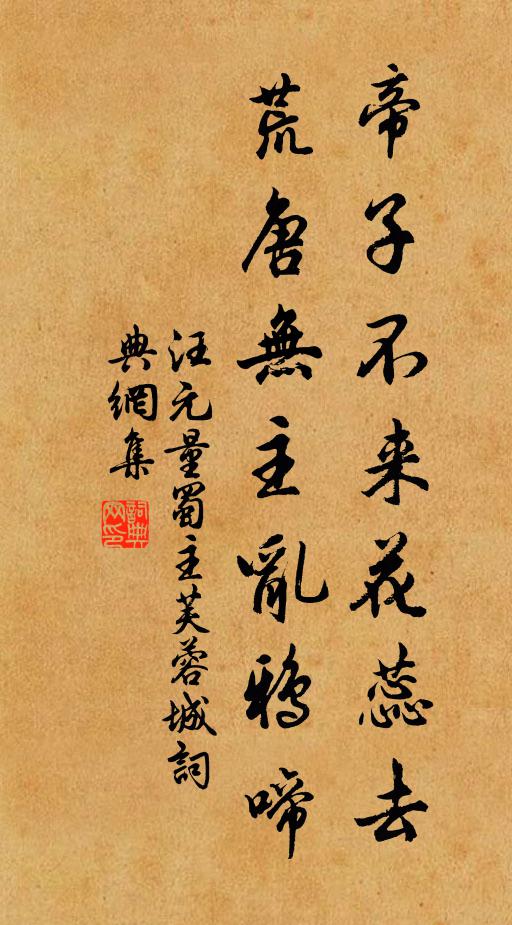 帝子不来花蕊去
荒唐無主亂鴉啼
汪元量蜀主芙蓉城詞
典網集
詞典
网印